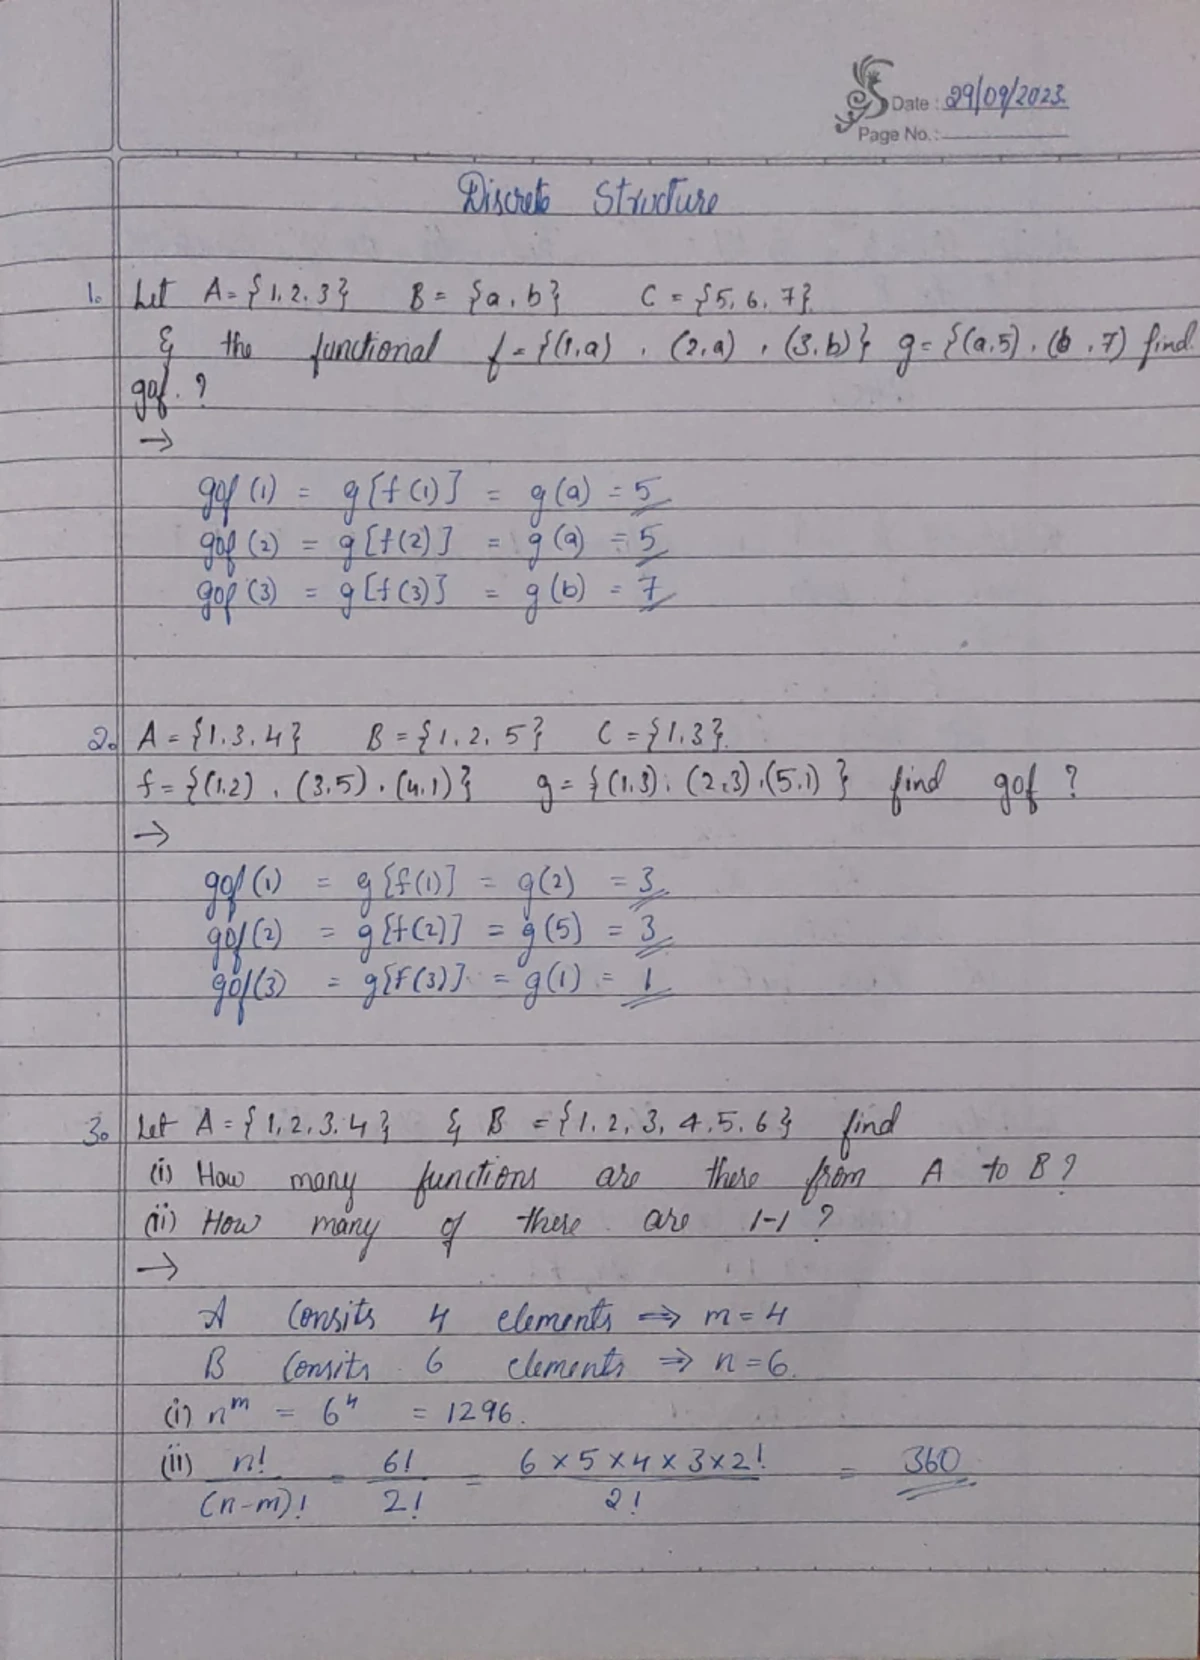 Date : 29/09/2023.
Page No.:
Discrete Structure
1. Let A = {1, 2, 3} B = {a, b} C = {5, 6, 7}
& the functional f = {(1,a) , (2,a) , (3,b)} g = {(a,5) , (b ,7) find.
gof. ?
→
gof (1) = g[f(1)] = g(a) = 5
gof (2) = g[f(2)] = g(a) = 5
gof (3) = g[f(3)] = g(b) = 7
2. A = {1, 3, 4} B = {1, 2, 5} C = {1, 3}.
f = {(1,2) , (3,5) , (4,1)} g = {(1,3), (2,3), (5,1) } find gof ?
→
gof (1) = g[f(1)] = g(2) = 3
gof(2) = g[f(2)] = g(5) = 3
gof(3) = g[f(3)] = g(1) = 1
3. Let A = {1, 2, 3, 4} & B = {1, 2, 3, 4, 5, 6} find
(i) How many functions are there from A to B ?
(ii) How many of there are 1-1 ?
→
A Consits 4 elements ⇒ m = 4
B Consits 6 elements ⇒ n = 6.
(i) n^m = 6^4 = 1296.
(ii) n!/(n-m)! = 6!/2! = 6 × 5 × 4 × 3 × 2!/2! = 360